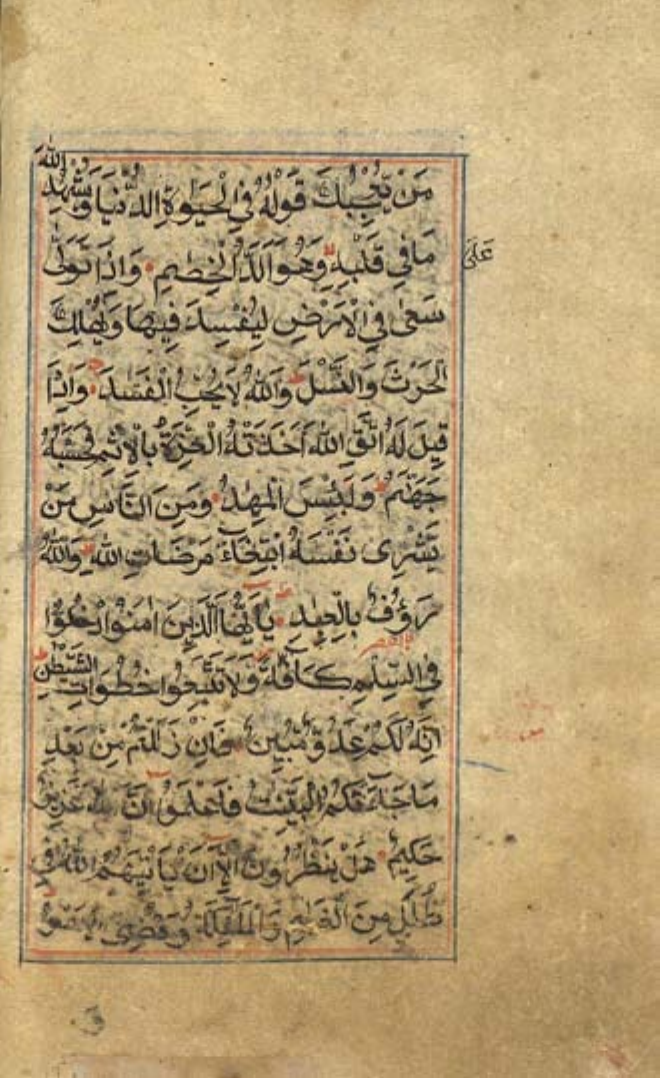 مَنْ يُعْجِبُكَ قَوْلُهُ فِي الْحَيَوةِ الدُّنْيَا وَيُشْهِدُ اللّٰهَ
عَلَىٰ
مَا فِي قَلْبِهِ وَهُوَ اَلَدُّ الْخِصَامِ وَاِذَا تَوَلّٰى
سَعٰى فِي الْاَرْضِ لِيُفْسِدَ فِيهَا وَيُهْلِكَ
الْحَرْثَ وَالنَّسْلَ وَاللّٰهُ لَا يُحِبُّ الْفَسَدَ وَاِذَا
قِيلَ لَهُ اتَّقِ اللّٰهَ اَخَذَتْهُ الْعِزَّةُ بِالْاِثْمِ فَحَسْبُهُ
جَهَنَّمُ وَلَبِئْسَ الْمِهٰدُ وَمِنَ النَّاسِ مَنْ
يَشْرِى نَفْسَهُ ابْتِغَاءَ مَرْضَاتِ اللّٰهِ وَاللّٰهُ
رَؤُفٌ بِالْعِبٰدِ يَا اَيُّهَا الَّذِينَ اٰمَنُوا ادْخُلُوا
فِي السِّلْمِ كَافَّةً وَلَا تَتَّبِعُوا خُطُوَاتِ الشَّيْطٰنِ
اِنَّهُ لَكُمْ عَدُوٌّ مُبِينٌ فَاِنْ زَلَلْتُمْ مِنْ بَعْدِ
مَا جَاءَتْكُمُ الْبَيِّنٰتُ فَاعْلَمُوا اَنَّ اللّٰهَ عَزِيزٌ
حَكِيمٌ هَلْ يَنْظُرُونَ اِلَّا اَنْ يَاْتِيَهُمُ اللّٰهُ فِي
ظُلَلٍ مِنَ الْغَمَامِ وَالْمَلٰئِكَةُ وَقُضِىَ